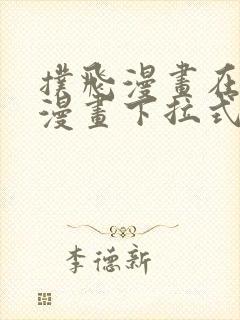 撲飛漫畫在
漫畫下拉式
李德新